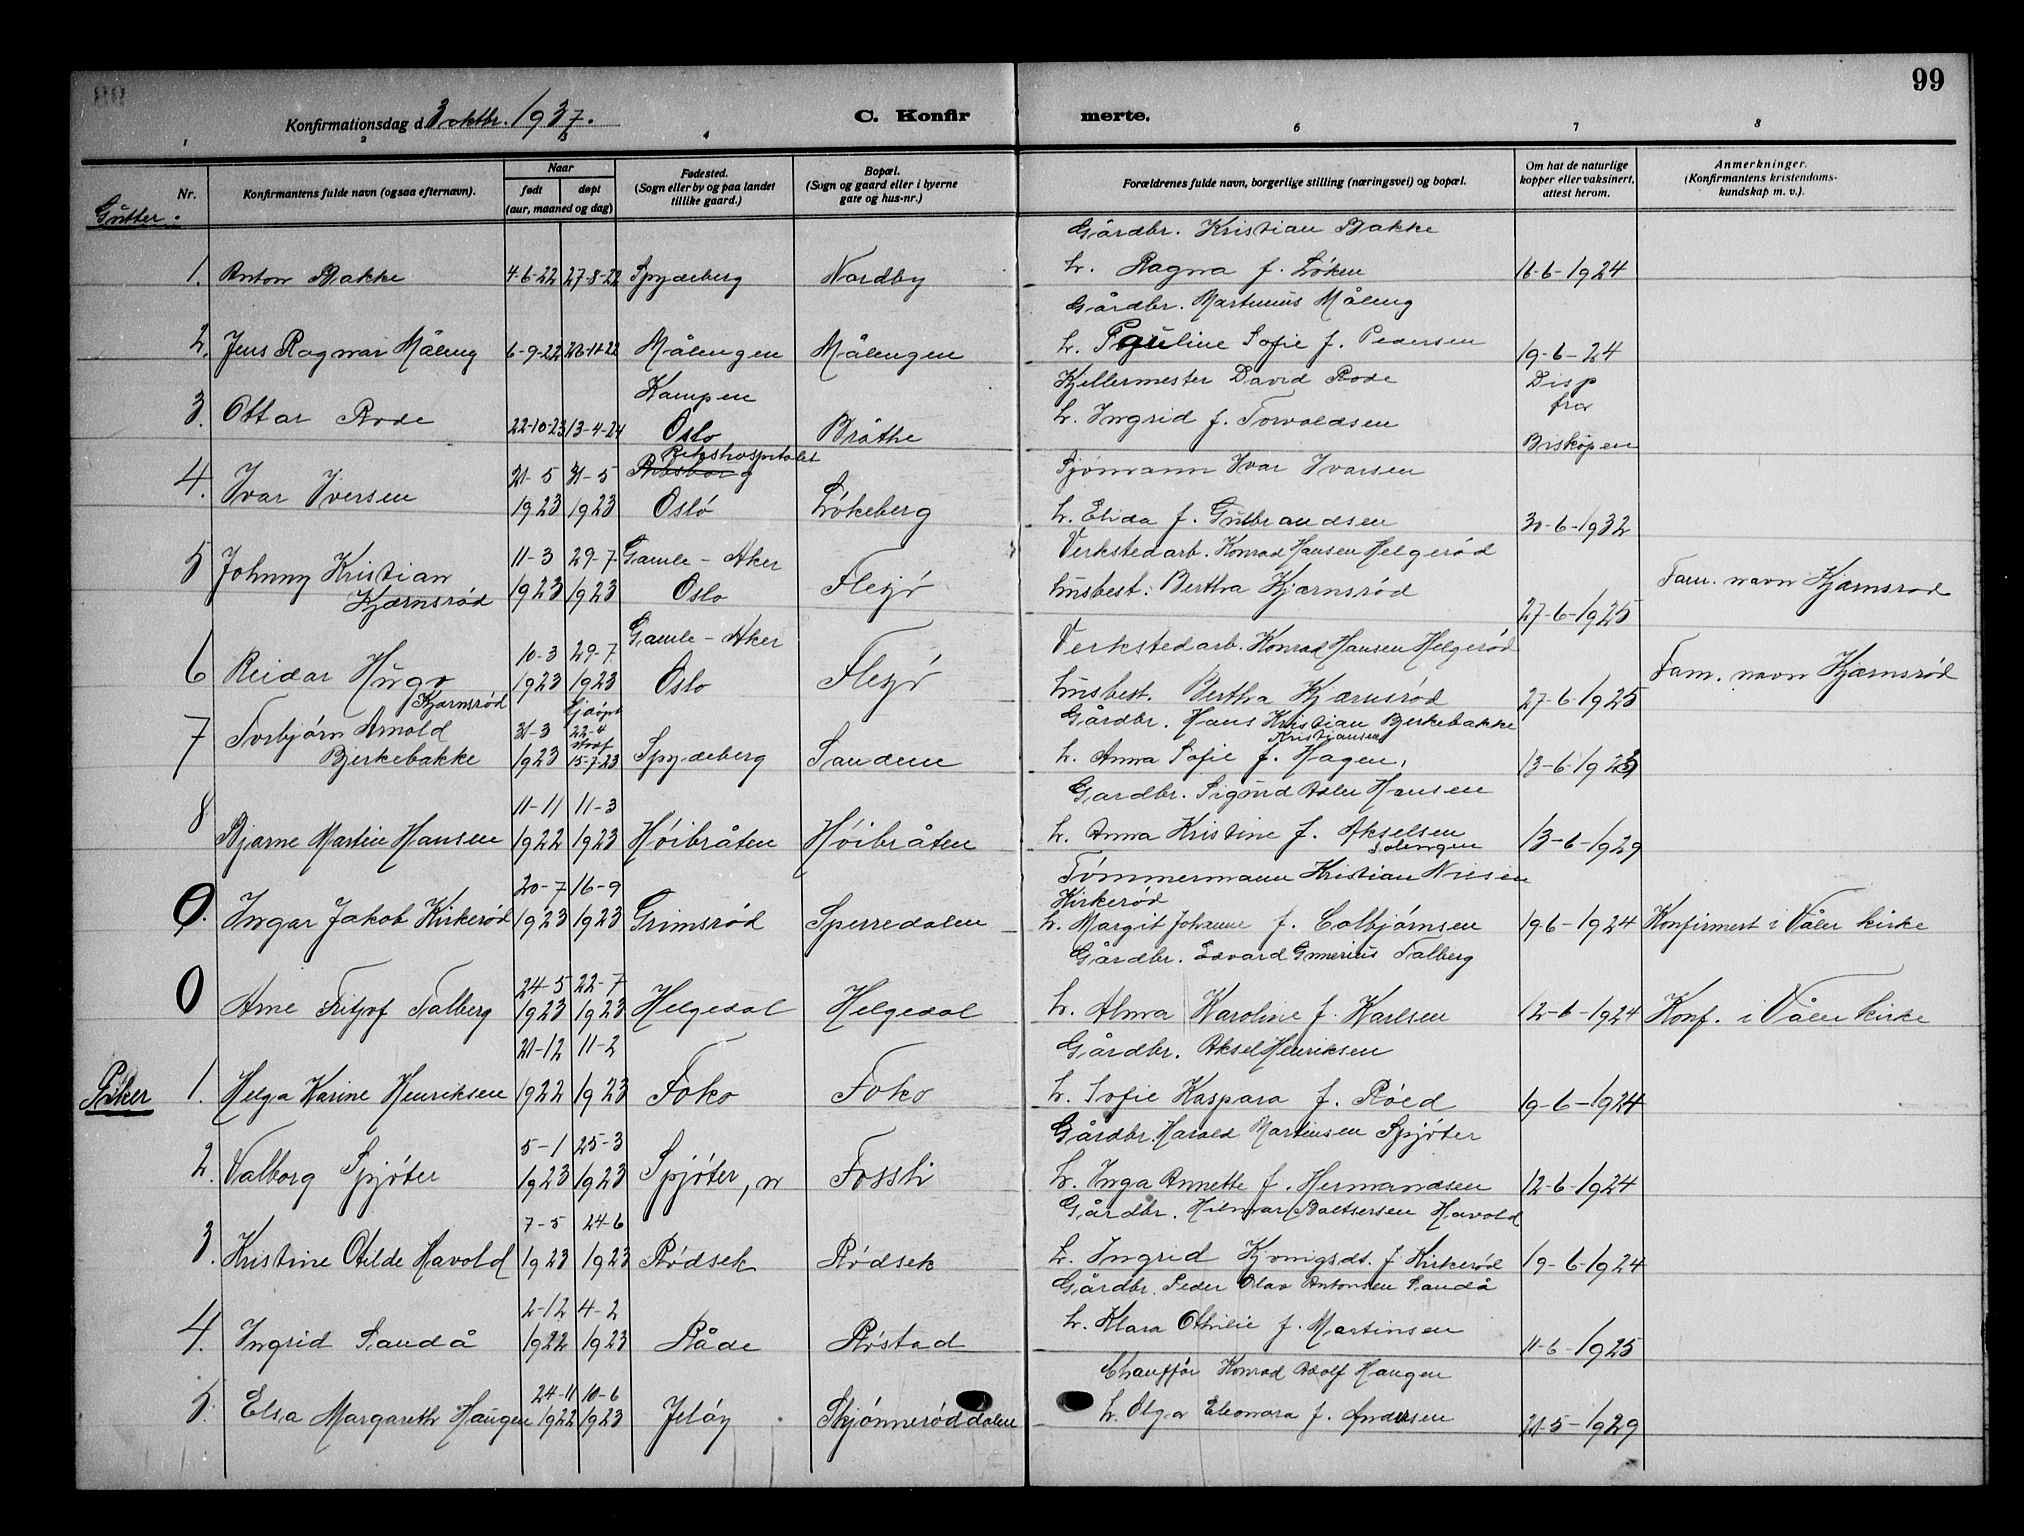 99
Konfirmationsdag d. 3 oktbr. 1937.
C. Konfirmerte.
1 2 3 4 6 7 8
Nr.
Konfirmantens fulde navn (ogsaa efternavn).
Naar
født
døpt
(aar, maaned og dag)
Fødested.
(Sogn eller by og paa landet
tillike gaard.)
Bopæl.
(Sogn og gaard eller i byerne
gate og hus-nr.)
Forældrenes fulde navn, borgerlige stilling (næringsvei) og bopæl.
Om hat de naturlige
kopper eller vaksinert,
attest herom.
Anmerkninger.
(Konfirmantens kristendoms-
kundskap m. v.).
Gutter:
Gårdbr. Kristian Bakke
1. Anton Bakke 4-6-22 27-8-22 Spydeberg Nordby h. Ragna f. Løken 16-6-1924
Gårdbr. Martinius Måleng
2. Jens Ragnar Måleng 6-9-22 26-11-22 Målengen Målengen h. Pauline Sofie f. Pedersen 19-6-24
Kampen Kjellermester David Rode Disp
3. Ottar Rode 22-10-23 13-4-24 Oslo Bråthe h. Ingrid f. Torvaldsen fra Biskopen
4. 21-5 31-5 Rikshospitalet Sjømann Ivar Iversen
Ivar Iversen 1923 1923 Oslo Løkeberg h. Elida f. Gulbrandsen 30-6-1932
5 11-3 29-7 Gamle-Aker Verkstedarb. Konrad Hansen Helgerød
Johnny Kristian Kjærnsrød 1923 1923 Oslo Flesjø husbest. Bertha Kjærnsrød 27-6-1925 Fam. navn Kjærnsrød
6 10-3 29-7 Gamle-Aker Verkstedarb. Konrad Hansen Helgerød
Reidar Hugo Kjærnsrød 1923 1923 Oslo Flesjø husbest. Bertha Kjærnsrød 27-6-1925 Fam. navn Kjærnsrød
7 31-3 Hjdøpt 22-4 Gårdbr. Hans Kristian Bjerkebakke
Torbjørn Arnold Bjerkebakke 1923 15-7-23 Spydeberg Sandem h. Anna Sofie f. Hagen, Kristiansen 13-6-1923
8 11-11 11-3 Gardbr. Sigurd Asler Hansen
Bjarne Martin Hansen 1922 1923 Høibråten Høibråten h. Anna Kristine f. Akselsen Solengen 13-6-1929
20-7 16-9 Tømmermann Kristian Nilsen
Kirkerød
0. Ingar Jakob Kirkerød 1923 1923 Grimsrød Sperredalen h. Margit Johanne f. Colbjørnsen 19-6-1924 Konfirmert i Våler kirke
Gårdbr. Edvard Gunerius Talberg
0 24-5 22-7
Arne Fritjof Talberg 1923 1923 Helgedal Helgedal h. Alma Karoline f. Karlsen 12-6-1924 Konf. i Våler kirke
21-12 11-2 Gårdbr. Aksel Henriksen
Piker 1. Helga Karine Henriksen 1922 1923 Foko Foko h. Sofie Kaspara f. Røed 19-6-1924
5-1 25-3 Gårdbr. Harald Martinsen Spjøter
2. Valborg Spjøter 1923 1923 Spjøter, n Fossli h. Inga Annette f. Hermansen 12-6-1924
7-5 24-6 Gårdbr. Hilmar Baltsersen Havold
3. Kristine Otilde Havold 1923 1923 Rødsek Rødsek h. Ingrid Kjønigsdt. f. Kirkerød 19-6-1924
2-12 4-2 Gårdbr. Peder Olav Antonsen Sandå
4. Ingrid Sandå 1922 1923 Råde Røstad h. Klara Othilie f. Martinsen 11-6-1925
24-11 10-6 Chauffør Konrad Adolf Haugen
5. Elsa Margareth Haugen 1922 1923 Jeløy Skjønnerøddalen h. Olga Eleonora f. Andersen 21-5-1929